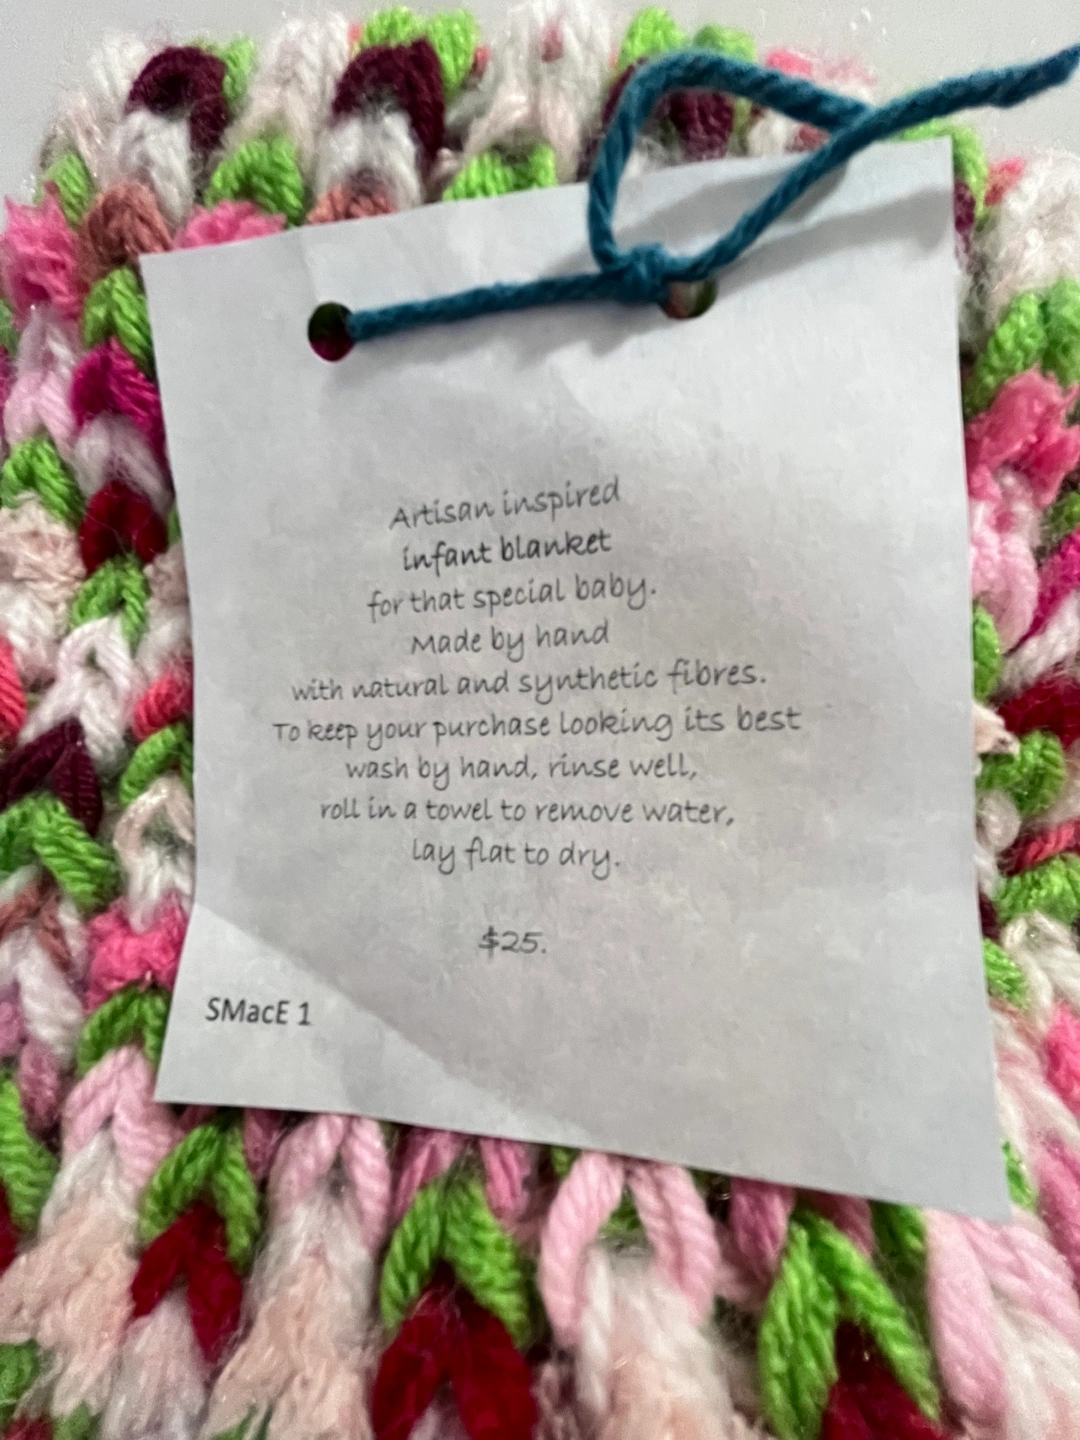 Artisan inspired
infant blanket
for that special baby.
Made by hand
with natural and synthetic fibres.
To keep your purchase looking its best
wash by hand, rinse well,
roll in a towel to remove water,
lay flat to dry.
$25.
SMacE 1